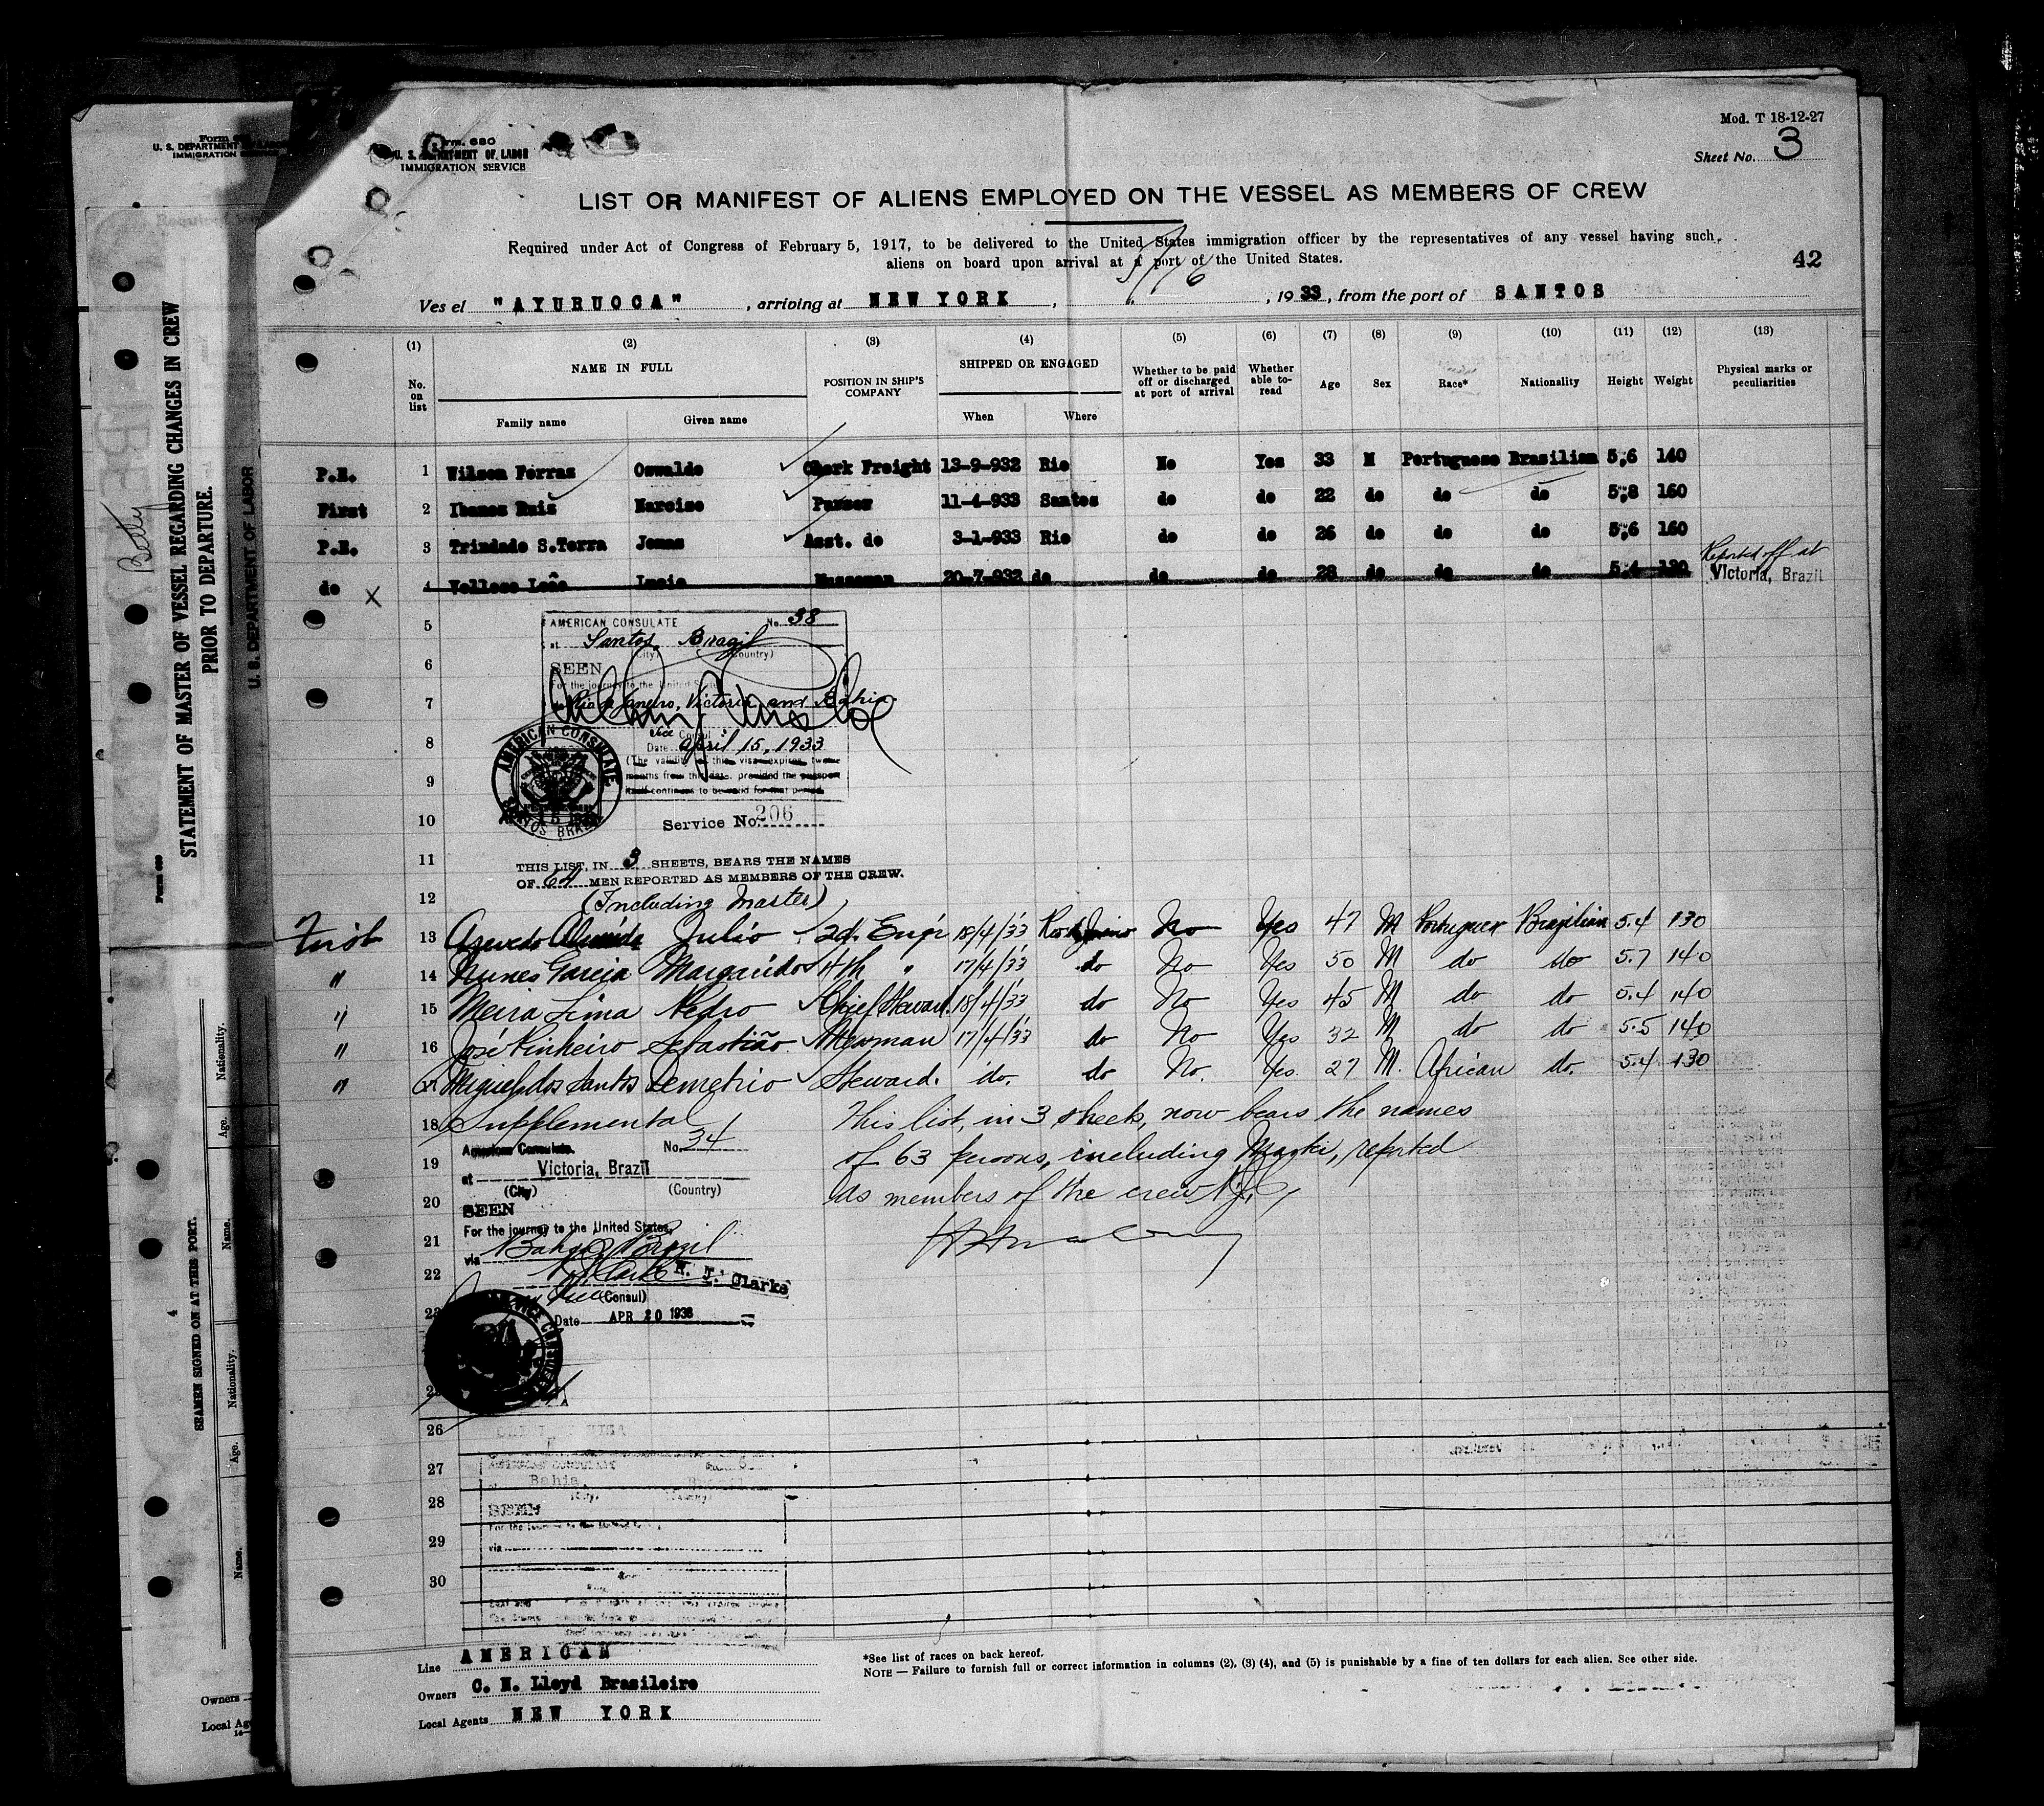 Form 680
U. S. DEPARTMENT OF LABOR
IMMIGRATION SERVICE
Mod. T 18-12-27
Sheet No. 3
LIST OR MANIFEST OF ALIENS EMPLOYED ON THE VESSEL AS MEMBERS OF CREW
Required under Act of Congress of February 5, 1917, to be delivered to the United States immigration officer by the representatives of any vessel having such
aliens on board upon arrival at a port of the United States.
42
5/16
Ves el "AYURUOCA", arriving at NEW YORK, , 1933, from the port of SANTOS
(1) (2) (3) (4) (5) (6) (7) (8) (9) (10) (11) (12) (13)
No. on list
NAME IN FULL
Family name Given name
POSITION IN SHIP'S COMPANY
SHIPPED OR ENGAGED
When Where
Whether to be paid off or discharged at port of arrival
Whether able to- read
Age Sex Race* Nationality Height Weight
Physical marks or peculiarities
P.R. 1 Wilson Ferraz Oswaldo Clerk Freight 13-9-932 Rio No Yes 33 M Portuguese Brasilian 5;6 140
First 2 Ibanes Ruiz Narciso Purser 11-4-933 Santos do do 22 do do do 5;8 160
P.R. 3 Trindade S.Terra Jomas Asst. do 3-1-933 Rio do do 26 do do do 5;6 160
do x 4 Velloso Leão Lucio Messman 20-7-932 do do do 28 do do do 5;4 130 Reported off at
Victoria, Brazil
5
AMERICAN CONSULATE No. 38
at Santos, Brazil
(City) (Country)
6
SEEN
For the journey to the United States
7
Rio de Janeiro, Victoria and Bahia
Vice Consul
8
Date April 15, 1933
(The validity of this visa expires twelve
months from this date, provided the passport
itself continues to be valid for that period.
9
AMERICAN CONSULATE
SANTOS BRAZIL
10
Service No. 206
11
THIS LIST, IN 3 SHEETS, BEARS THE NAMES
OF 64 MEN REPORTED AS MEMBERS OF THE CREW.
12
(Including Master)
First 13 Azevedo Almeida Julio 2d. Engr 18/4/33 Rio de Janeiro No Yes 47 M Portuguese Brazilian 5.4 130
" 14 Nunes Garcia Margarido 4th " 17/4/33 do No Yes 50 M do do 5.7 140
" 15 Meira Lima Pedro Chief Steward 18/4/33 do No Yes 45 M do do 5.4 140
" 16 José Pinheiro Sebastião Messman 17/4/33 do No Yes 32 M do do 5.5 140
" 17 Miguel dos Santos Demetrio Steward. do. do No. Yes. 27 M. African do. 5.4 130
18 Supplemental This list, in 3 sheets, now bears the names
American Consulate. No. 34
19
at Victoria, Brazil of 63 persons, including Master, reported
(City) (Country)
20 as members of the crew
SEEN
For the journey to the United States,
21
via Bahia Brazil
22
R. J. Clarke
(Consul)
23
Date APR 20 1933
25
26
27
Bahia
28
SEEN
29
via
30
Line AMERICAN
Owners C. N. Lloyd Brasileiro
Local Agents NEW YORK
*See list of races on back hereof.
NOTE — Failure to furnish full or correct information in columns (2), (3) (4), and (5) is punishable by a fine of ten dollars for each alien. See other side.
U. S. DEPARTMENT OF LABOR
IMMIGRATION SERVICE
STATEMENT OF MASTER OF VESSEL REGARDING CHANGES IN CREW
PRIOR TO DEPARTURE.
U. S. DEPARTMENT OF LABOR
Betty
SEAMEN SIGNED ON AT THIS PORT.
4
Name. Age. Nationality.
Name. Age. Nationality.
Owners
Local Ag